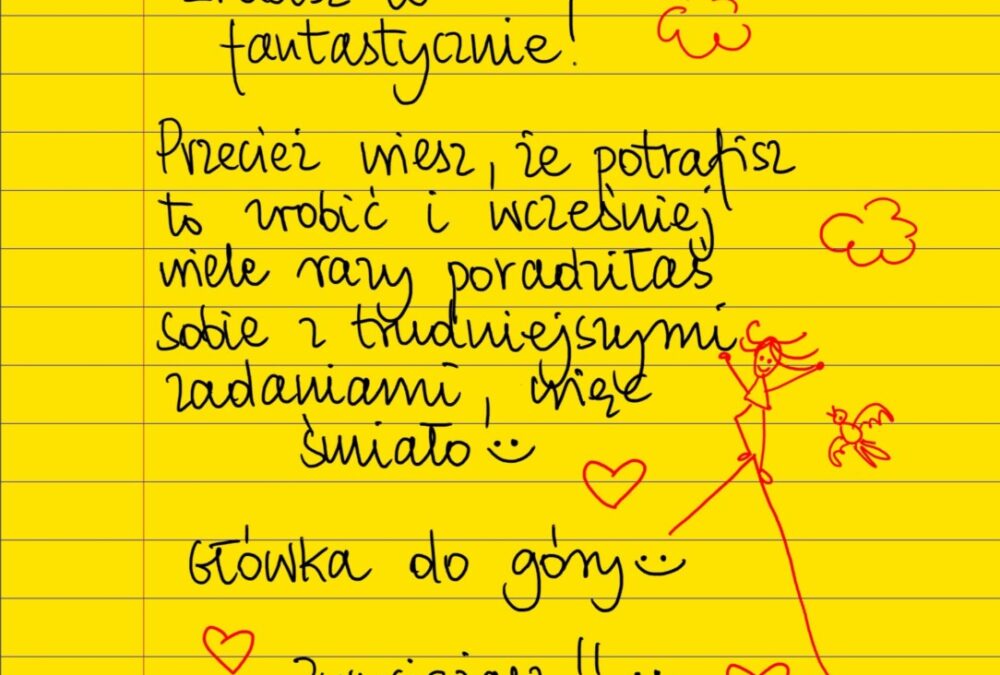 fantastycznie!
Przecież wiesz, że potrafisz
to zrobić i wcześniej
wiele razy poradziłaś
sobie z trudniejszymi
zadaniami, więc
śmiało
Główka do góry